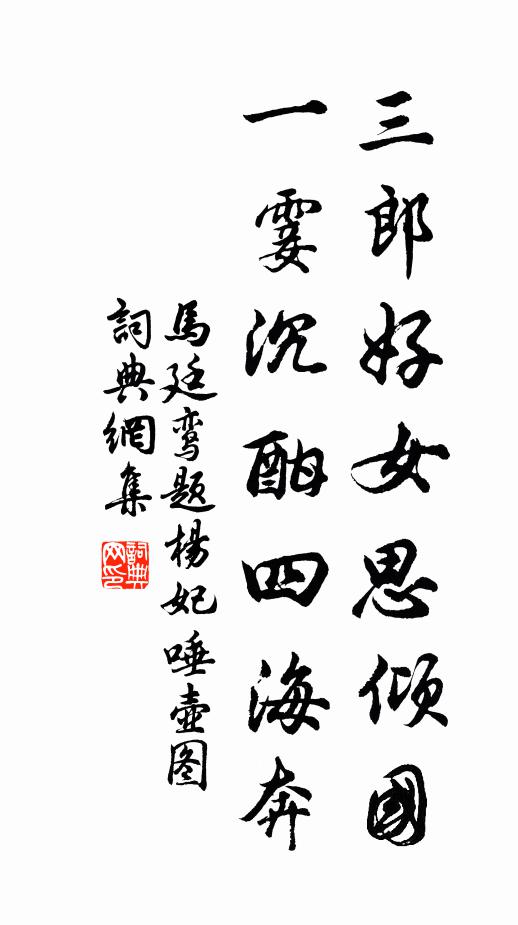 三郎好女思倾國
一霎沉酣四海奔
馬廷鸾题楊妃唾壺图
詞典網集
詞典网印